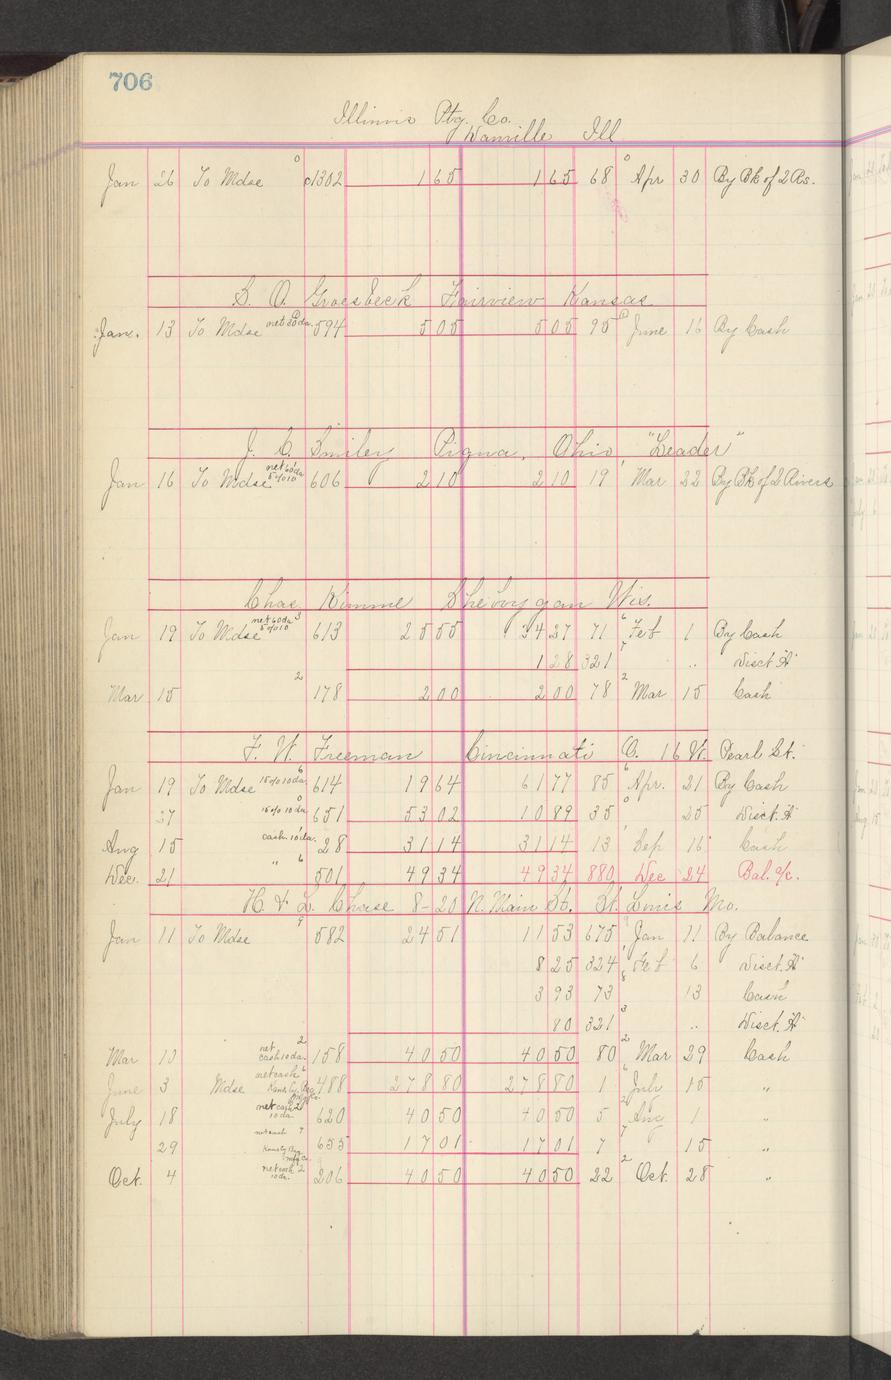 706
Illinois Ptg. Co.
Danville Ill
Jan 26 To Mdse 0 1302 1 65 1 65 68 0 Apr 30 By Bk of 2 Rs.
S. O. Groesbeck Fairview Kansas
Jan. 13 To Mdse net 60 da. 594 5 05 5 05 95 June 16 By Cash
J. C. Smiley Piqua, Ohio, "Leader"
Jan 16 To Mdse net 60 da 5% 10 606 2 10 2 10 19 Mar 22 By Bk of 2 Rivers
Chas Kimme Sheboygan Wis.
Jan 19 To Mdse net 60 da 5% 10 3 613 25 55 24 27 71 6 Feb 1 By Cash
1 28 321 7 .. Disct. A
Mar 15 2 178 2 00 2 00 78 2 Mar 15 Cash
F. W. Freeman Cincinnati O. 16 W. Pearl St.
Jan 19 To Mdse 15% 10 da 6 614 19 64 61 77 85 6 Apr. 21 By Cash
27 15% 10 da 0 651 53 02 10 89 35 0 25 Disct. A
Aug 15 cash 10 da. 1 28 31 14 31 14 13 1 Sep 16 Cash
Dec. 21 " 6 501 49 34 49 34 880 Dec 24 Bal. a/c.
H. & L. Chase 8-20 N. Main St. St. Louis Mo.
Jan 11 To Mdse 9 582 24 51 11 53 675 9 Jan 11 By Balance
8 25 324 1 Feb 6 Disct. A
3 93 73 8 13 Cash
80 321 3 .. Disct. A
Mar 10 net cash 10 da. 2 158 40 50 40 50 80 2 Mar 29 Cash
June 3 Mdse net cash 6 488 278 80 278 80 1 6 July 15 "
July 18 net cash 2 10 da 620 40 50 40 50 5 2 Aug 1 "
29 net cash 7 655 17 01 17 01 7 7 15 "
Oct. 4 net cash 2 10 da. 206 40 50 40 50 22 2 Oct. 28 "